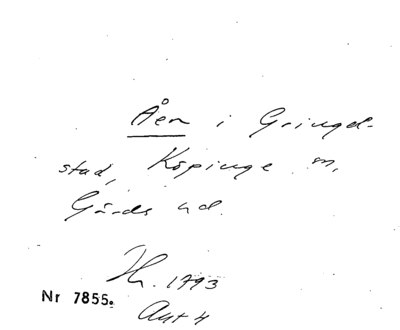 Åen i Gringel-
stad, Köpinge sn,
Gärds hd.
Hr. 1793
Nr 7855.
Akt 4